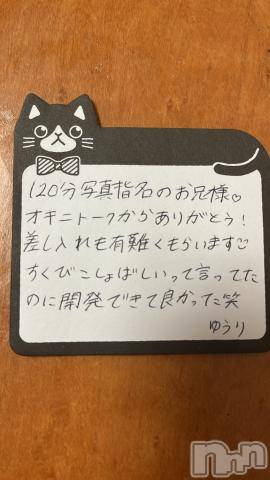 120分写真指名のお兄様♡
オキニトークからありがとう!
差し入れも有難くもらいます♡
ちくびこしょばしいって言ってた
のに開発できて良かった笑
ゆうり
nmn